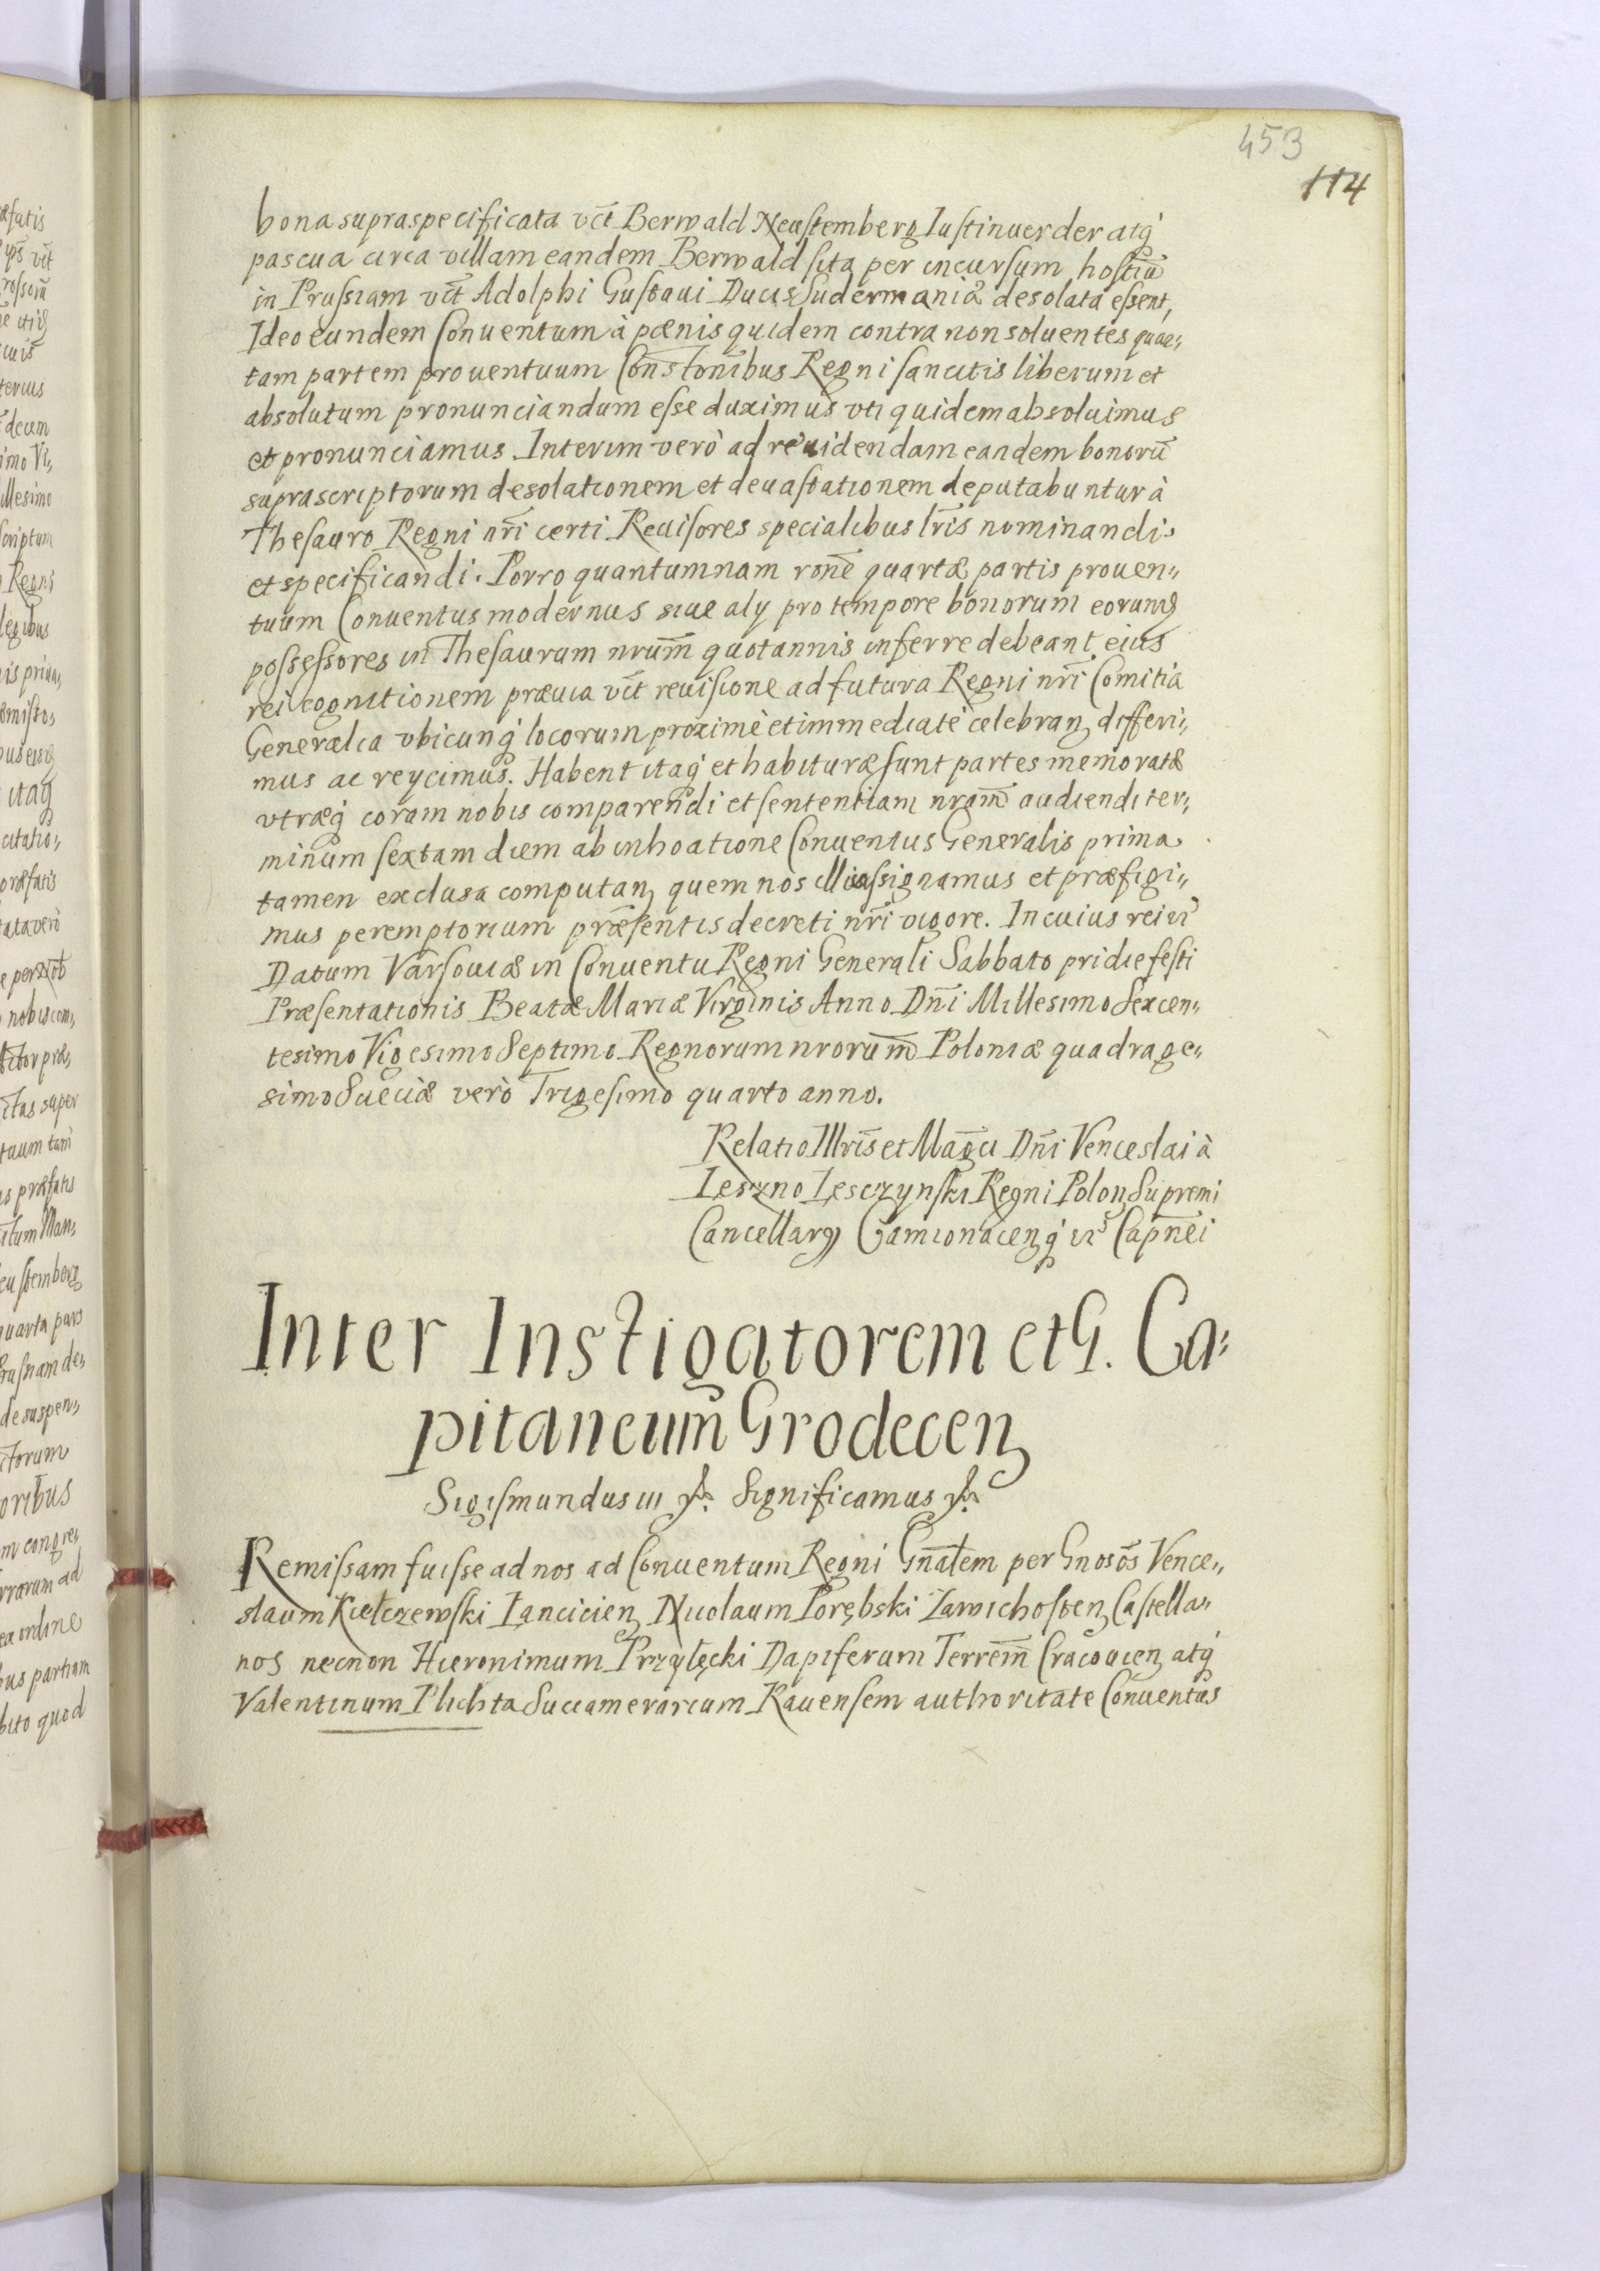 453
114
bona supraspecificata vc̄t Berwald Neustemberg Iustinuerder atq́
pascua circa villam eandem Berwald sita per incursum hostiū
in Prussiam vc̄t Adolphi Gustaui Ducis Sudermaniæ desolata essent,
Ideo eundem Conuentum à pœnis quidem contra non soluentes quar„
tam partem prouentuum Cons̄tonibus Regni sancitis liberum et
absolutum pronunciandum esse duximus vti quidem absoluimus
et pronunciamus. Interim verò ad reuidendam eandem bonorū
suprascriptorum desolationem et deuastationem deputabuntur à
Thesauro Regni nr̄i certi Reuisores specialibus lr̄is nominandi
et specificandi. Porro quantumnam ronē quartæ partis prouen„
tuum Conuentus modernus siue alÿ pro tempore bonorum eorumq́
possessores in Thesaurum nrum̄ quotannis inferre debeant, eius
rei cognitionem præuia vc̄t reuisione ad futura Regni nr̄i Comitia
Generalia vbicunq́ locorum proximè et immediatè celebran differi„
mus ac reÿcimus. Habent itaq́ et habituræ sunt partes memoratæ
vtræq́ coram nobis comparendi et sententiam nram̄ audiendi ter„
minum sextam diem ab inhoatione Conuentus Generalis prima
tamen exclusa computan quem nos illi assignamus et præfigi„
mus peremptorium præsentis decreti nr̄i vigore. In cuius rei
Datum Varsouiæ in Conuentu Regni Generali Sabbato pridie festi
Præsentationis Beatæ Mariæ Virginis Anno Dn̄i Millesimo Sexcen„
tesimo Vigesimo Septimo Regnorum nrorum̄ Poloniæ quadrage„
simo Sueciæ verò Trigesimo quarto anno.
Relatio Illris̄ et Mag̅ci Dn̄i Venceslai à
Leszno Lesczynski Regni Polon Supremi
Cancellarÿ Camionacenq́ Capn̄ei
Inter Instigatorem et G. Ca„
pitaneum Grodecen
Sigismundus III Significamus
Remissam fuisse ad nos ad Conuentum Regni Gn̄alem per Gnosos̄ Vence„
slaum Kiełczewski Lancicien Nicolaum Porębski Zawichosten Castella„
nos necnon Hieronimum Przyłęcki Dapiferum Terrem̄ Cracouien atq́
Valentinum Plichta Succamerarium Rauensem authoritate Conuentus